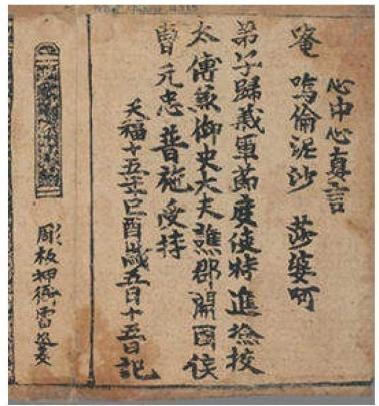 心中心真言
唵 嗚倫泥沙 莎婆呵
弟子歸義軍節度使特進檢校
太傅兼御史大夫譙郡開國侯
曹元忠普施受持
天福十五年己酉歲五月十五日記
彫板押衙雷延美